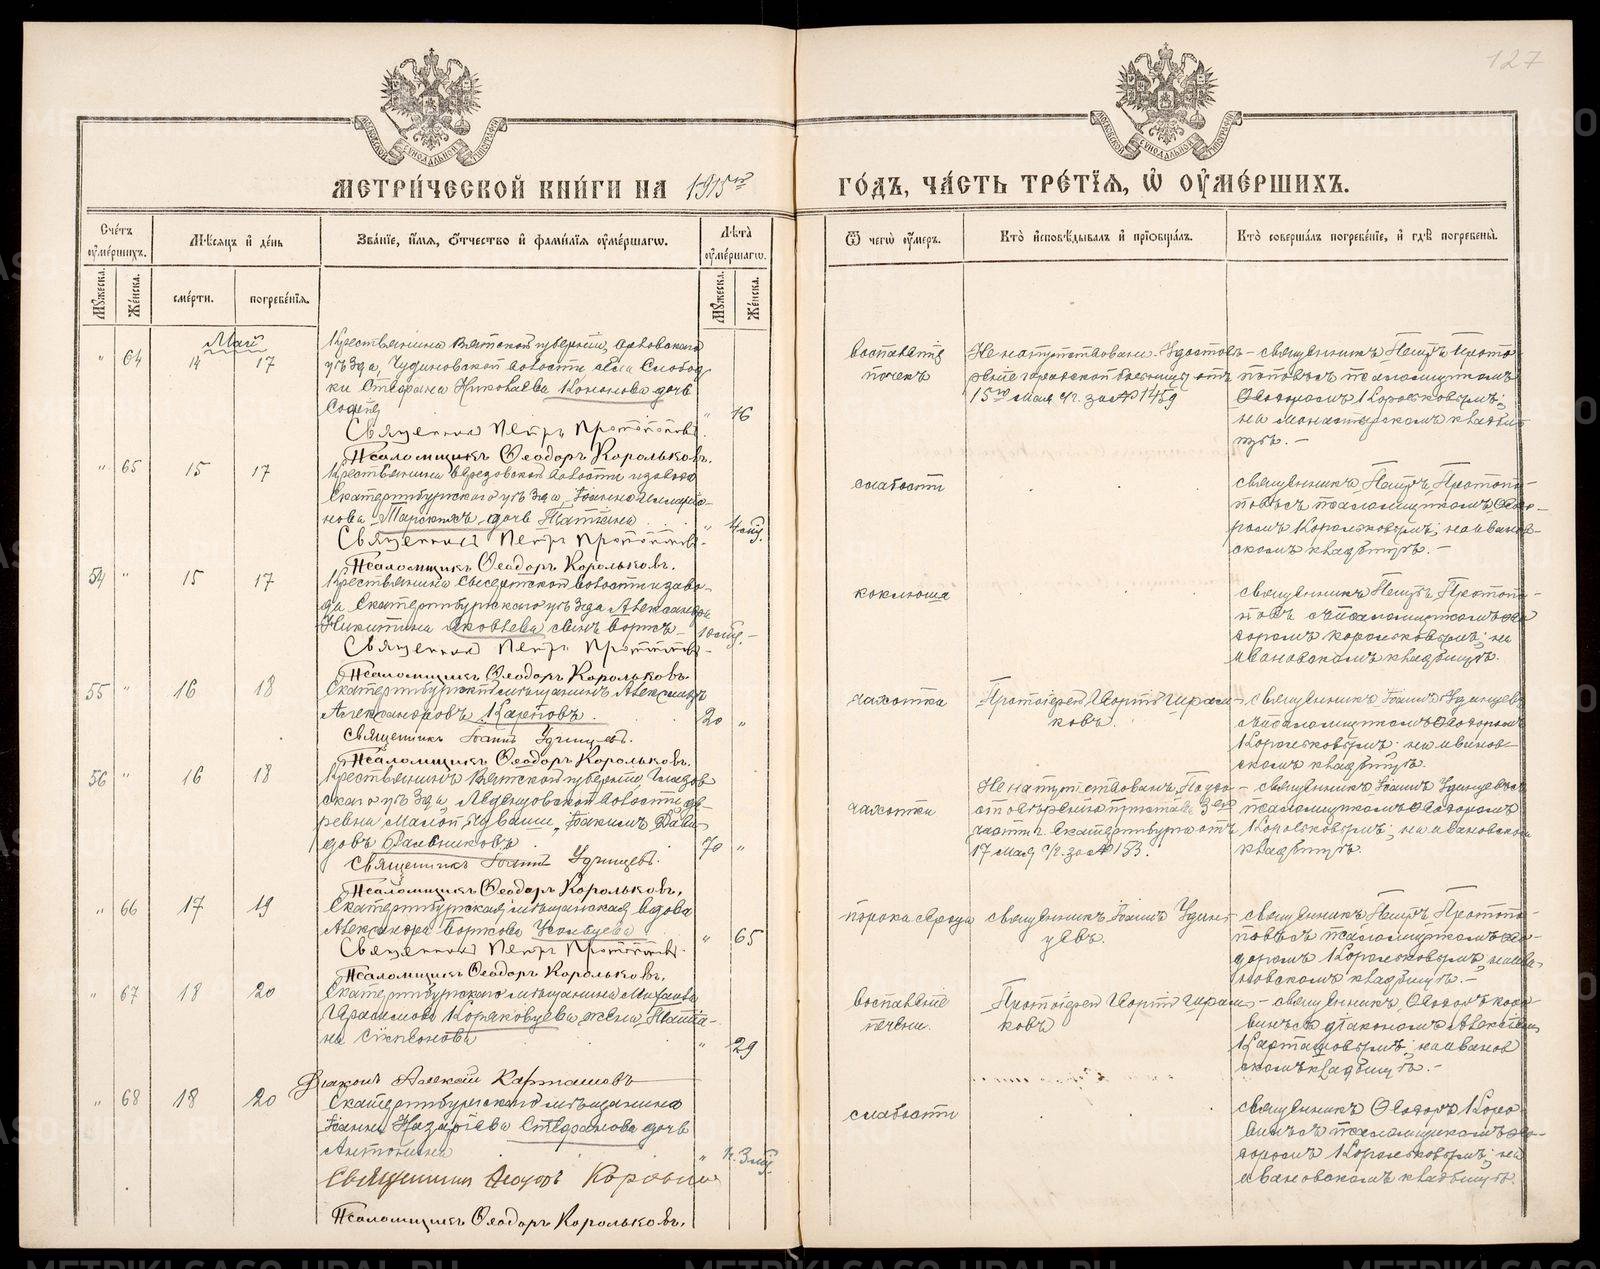 127
МОСКОВСКОЙ СѴНОДАЛЬНОЙ ТИПОГРАФІИ
МОСКОВСКОЙ СѴНОДАЛЬНОЙ ТИПОГРАФІИ
МЕТРИ́ЧЕСКОЙ КНИ́ГИ НА 1915й
ГО́ДЪ, ЧА́СТЬ ТРЕ́ТІѦ, Ѡ҆ ОУ҆МЕ́РШИХЪ.
Сче́тъ оу҆ме́ршихъ.
Мѣ́сяцъ и҆ де́нь
Зва́ніе, и҆́мя, ѻ҆́тчество и҆ фами́лія оу҆ме́ршагѡ.
Лѣ́та оу҆ме́ршагѡ.
Ѿ чегѡ̀ оу҆́меръ.
Кто̀ и҆сповѣ́дывалъ и҆ прїѡбща́лъ.
Кто̀ соверша́лъ погребе́ніе, и҆ гдѣ̀ погребены̀.
Мꙋ́жеска.
Же́нска.
сме́рти.
погребе́нія.
Мꙋ́жеска.
Же́нска.
Май
" 64 14 17
Крестьянина Вятской губерніи, Орловскаго
уѣзда, Чудиновской волости, Слобод-
ки Стефана Николаева Кононова дочь
Софія " 16
Священникъ Петръ Протопоповъ.
Псаломщикъ Ѳеодоръ Корольковъ.
воспаленіе
почекъ
Не напутствована. Удостов-
реніе городской больницы отъ
15го Мая с/г. за № 1459
священникъ Петръ Прото-
поповъ съ псаломщикомъ
Ѳеодоромъ Корольковымъ;
на монастырскомъ кладби-
щѣ. –
" 65 15 17
Крестьянина Березовской волости и завода
Екатеринбургскаго уѣзда, Іоанна Иларіо-
нова дочь Татіана " 4 мѣс.
Священникъ Петръ Протопоповъ.
Псаломщикъ Ѳеодоръ Корольковъ.
слабости
священникъ Петръ Протопо-
повъ съ псаломщикомъ Ѳеодо-
ромъ Корольковымъ; на иванов-
скомъ кладбищѣ. –
54 " 15 17
Крестьянина Сысертской волости и заво-
да Екатеринбургскаго уѣзда Александра
Никитина Яковлева сынъ Борисъ 10 мѣс. –
Священникъ Петръ Протопоповъ.
Псаломщикъ Ѳеодоръ Корольковъ.
коклюша
священникъ Петръ Протопо-
повъ съ псаломщикомъ Ѳео-
доромъ Корольковымъ; на
ивановскомъ кладбищѣ.
55 " 16 18
Екатеринбургскій мѣщанинъ Александръ
Александровъ Карповъ. 20 "
Священникъ Іоаннъ Удинцевъ.
Псаломщикъ Ѳеодоръ Корольковъ.
чахотка
Протоіерей Георгій
ковъ.
священникъ Іоаннъ Удинцевъ
съ псаломщикомъ Ѳеодоромъ
Корольковымъ; на иванов-
скомъ кладбищѣ.
56 " 16 18
Крестьянинъ Вятской губерніи, Глазов-
скаго уѣзда, волости, де-
ревни Малой Чуваши, Іоакимъ Дави-
довъ 70 "
Священникъ Іоаннъ Удинцевъ.
Псаломщикъ Ѳеодоръ Корольковъ.
чахотки
Не напутствованъ. По удо-
стовѣренію пристава 3ей
части г. Екатеринбурга отъ
17 мая с/г. за № 153.
священникъ Іоаннъ Удинцевъ съ
псаломщикомъ Ѳеодоромъ
Корольковымъ; на ивановскомъ
кладбищѣ.
" 66 17 19
Екатеринбургская мѣщанская вдова
Александра Борисова " 65
Священникъ Петръ Протопоповъ.
Псаломщикъ Ѳеодоръ Корольковъ.
порока сердца
священникъ Іоаннъ Удин-
цевъ.
священникъ Петръ Протопо-
повъ съ псаломщикомъ Ѳео-
доромъ Корольковымъ; на ива-
новскомъ кладбищѣ. –
" 67 18 20
Екатеринбургскаго мѣщанина Михаила
Герасимова Коряковцева жена
на " 29
Діаконъ Алексій Карташовъ
воспаленіе
печени.
Протоіерей Георгій
ковъ
священникъ Ѳеодоръ Коро-
винъ съ діакономъ Алексіемъ
Карташовымъ; на иванов-
скомъ кладбищѣ. –
" 68 18 20
Екатеринбургскаго мѣщанина
Іоанна Назарова Стефанова дочь
Антонина " 3 мѣс.
Священникъ Ѳеодоръ Коровинъ
Псаломщикъ Ѳеодоръ Корольковъ.
слабости
священникъ Ѳеодоръ Коро-
винъ съ псаломщикомъ Ѳео-
доромъ Корольковымъ; на
ивановскомъ кладбищѣ.